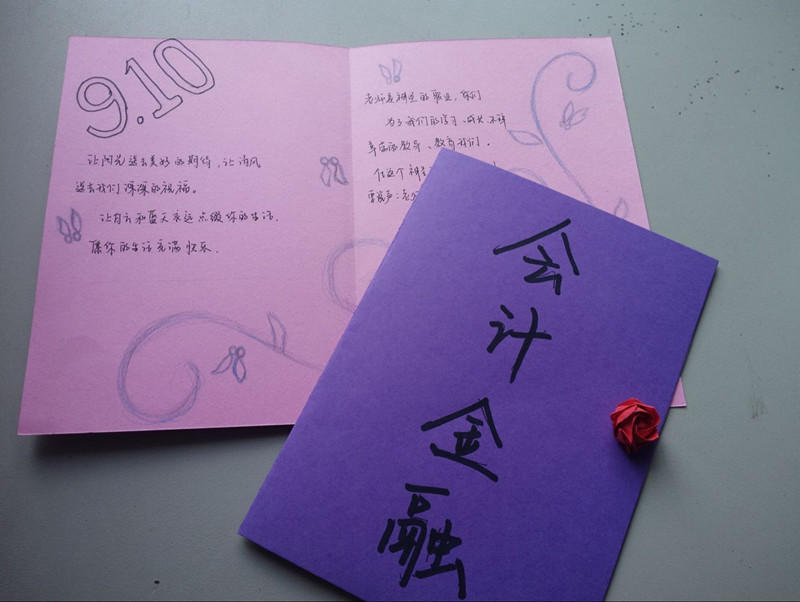 9.10
让阳光送去美好的期待,让清风
送去我们深深的祝福。
让白云和蓝天永远点缀你的生活,
愿你的生活充满快乐.
老师是神圣的职业,你们
为了我们的学习、成长、不辞
辛苦的教导、教育我们.
在这个
会
计
金
融